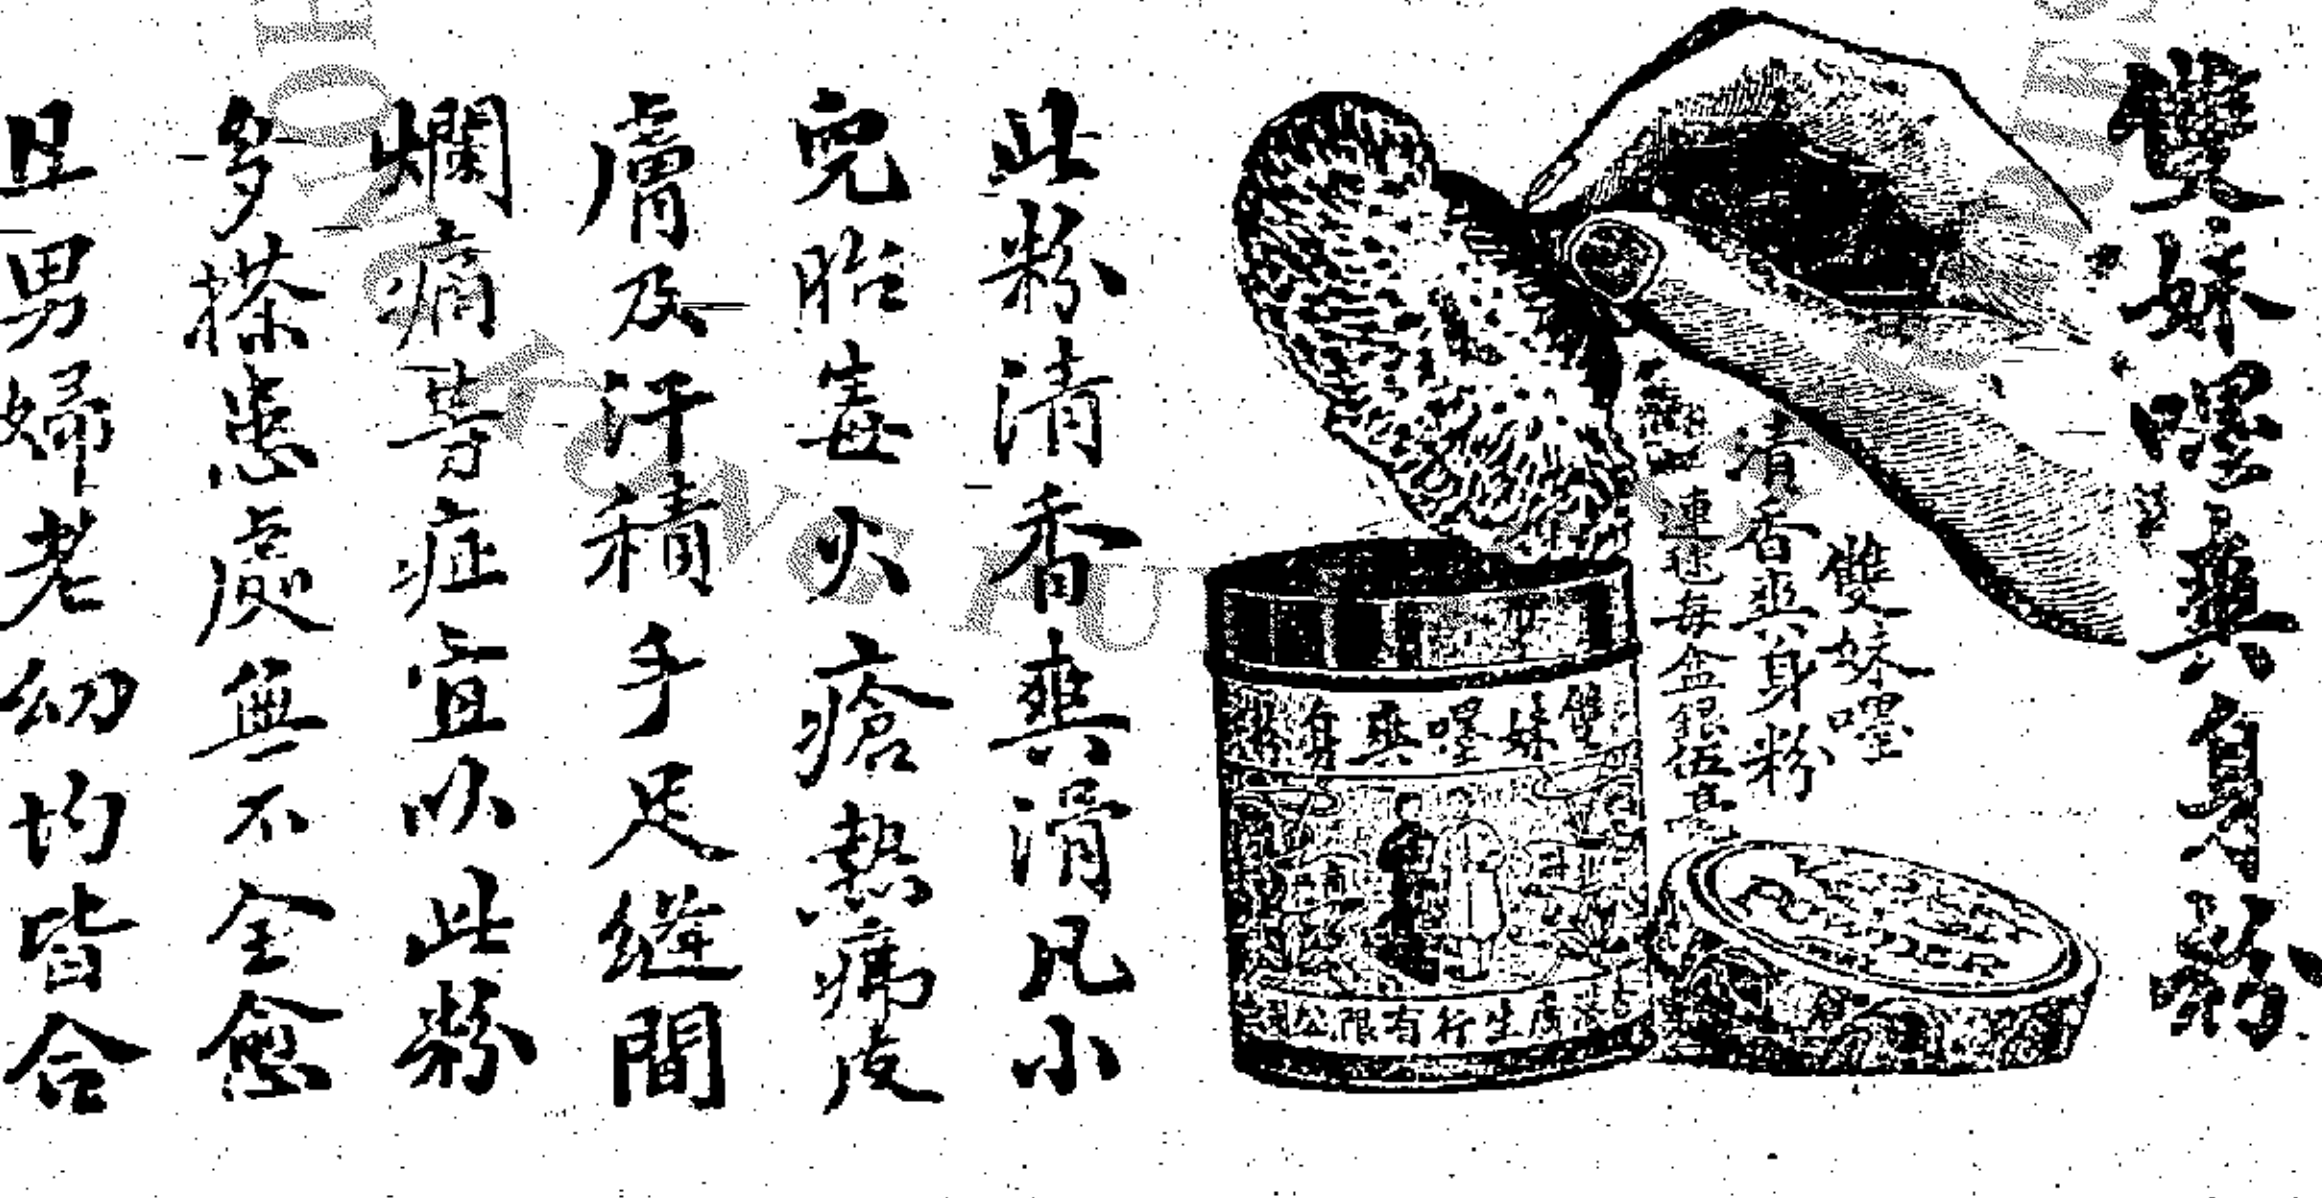 雙妹嚜爽身粉
雙妹嚜
清香爽身粉
連毡每盒銀伍毫
雙妹嚜爽身粉
廣生行有限公
此粉清香爽滑凡小
兒胎毒火瘡熱痱皮
膚及汗積手足縫間
爛痛等症宜以此粉
多搽患處無不全愈
且男婦老幼均皆合